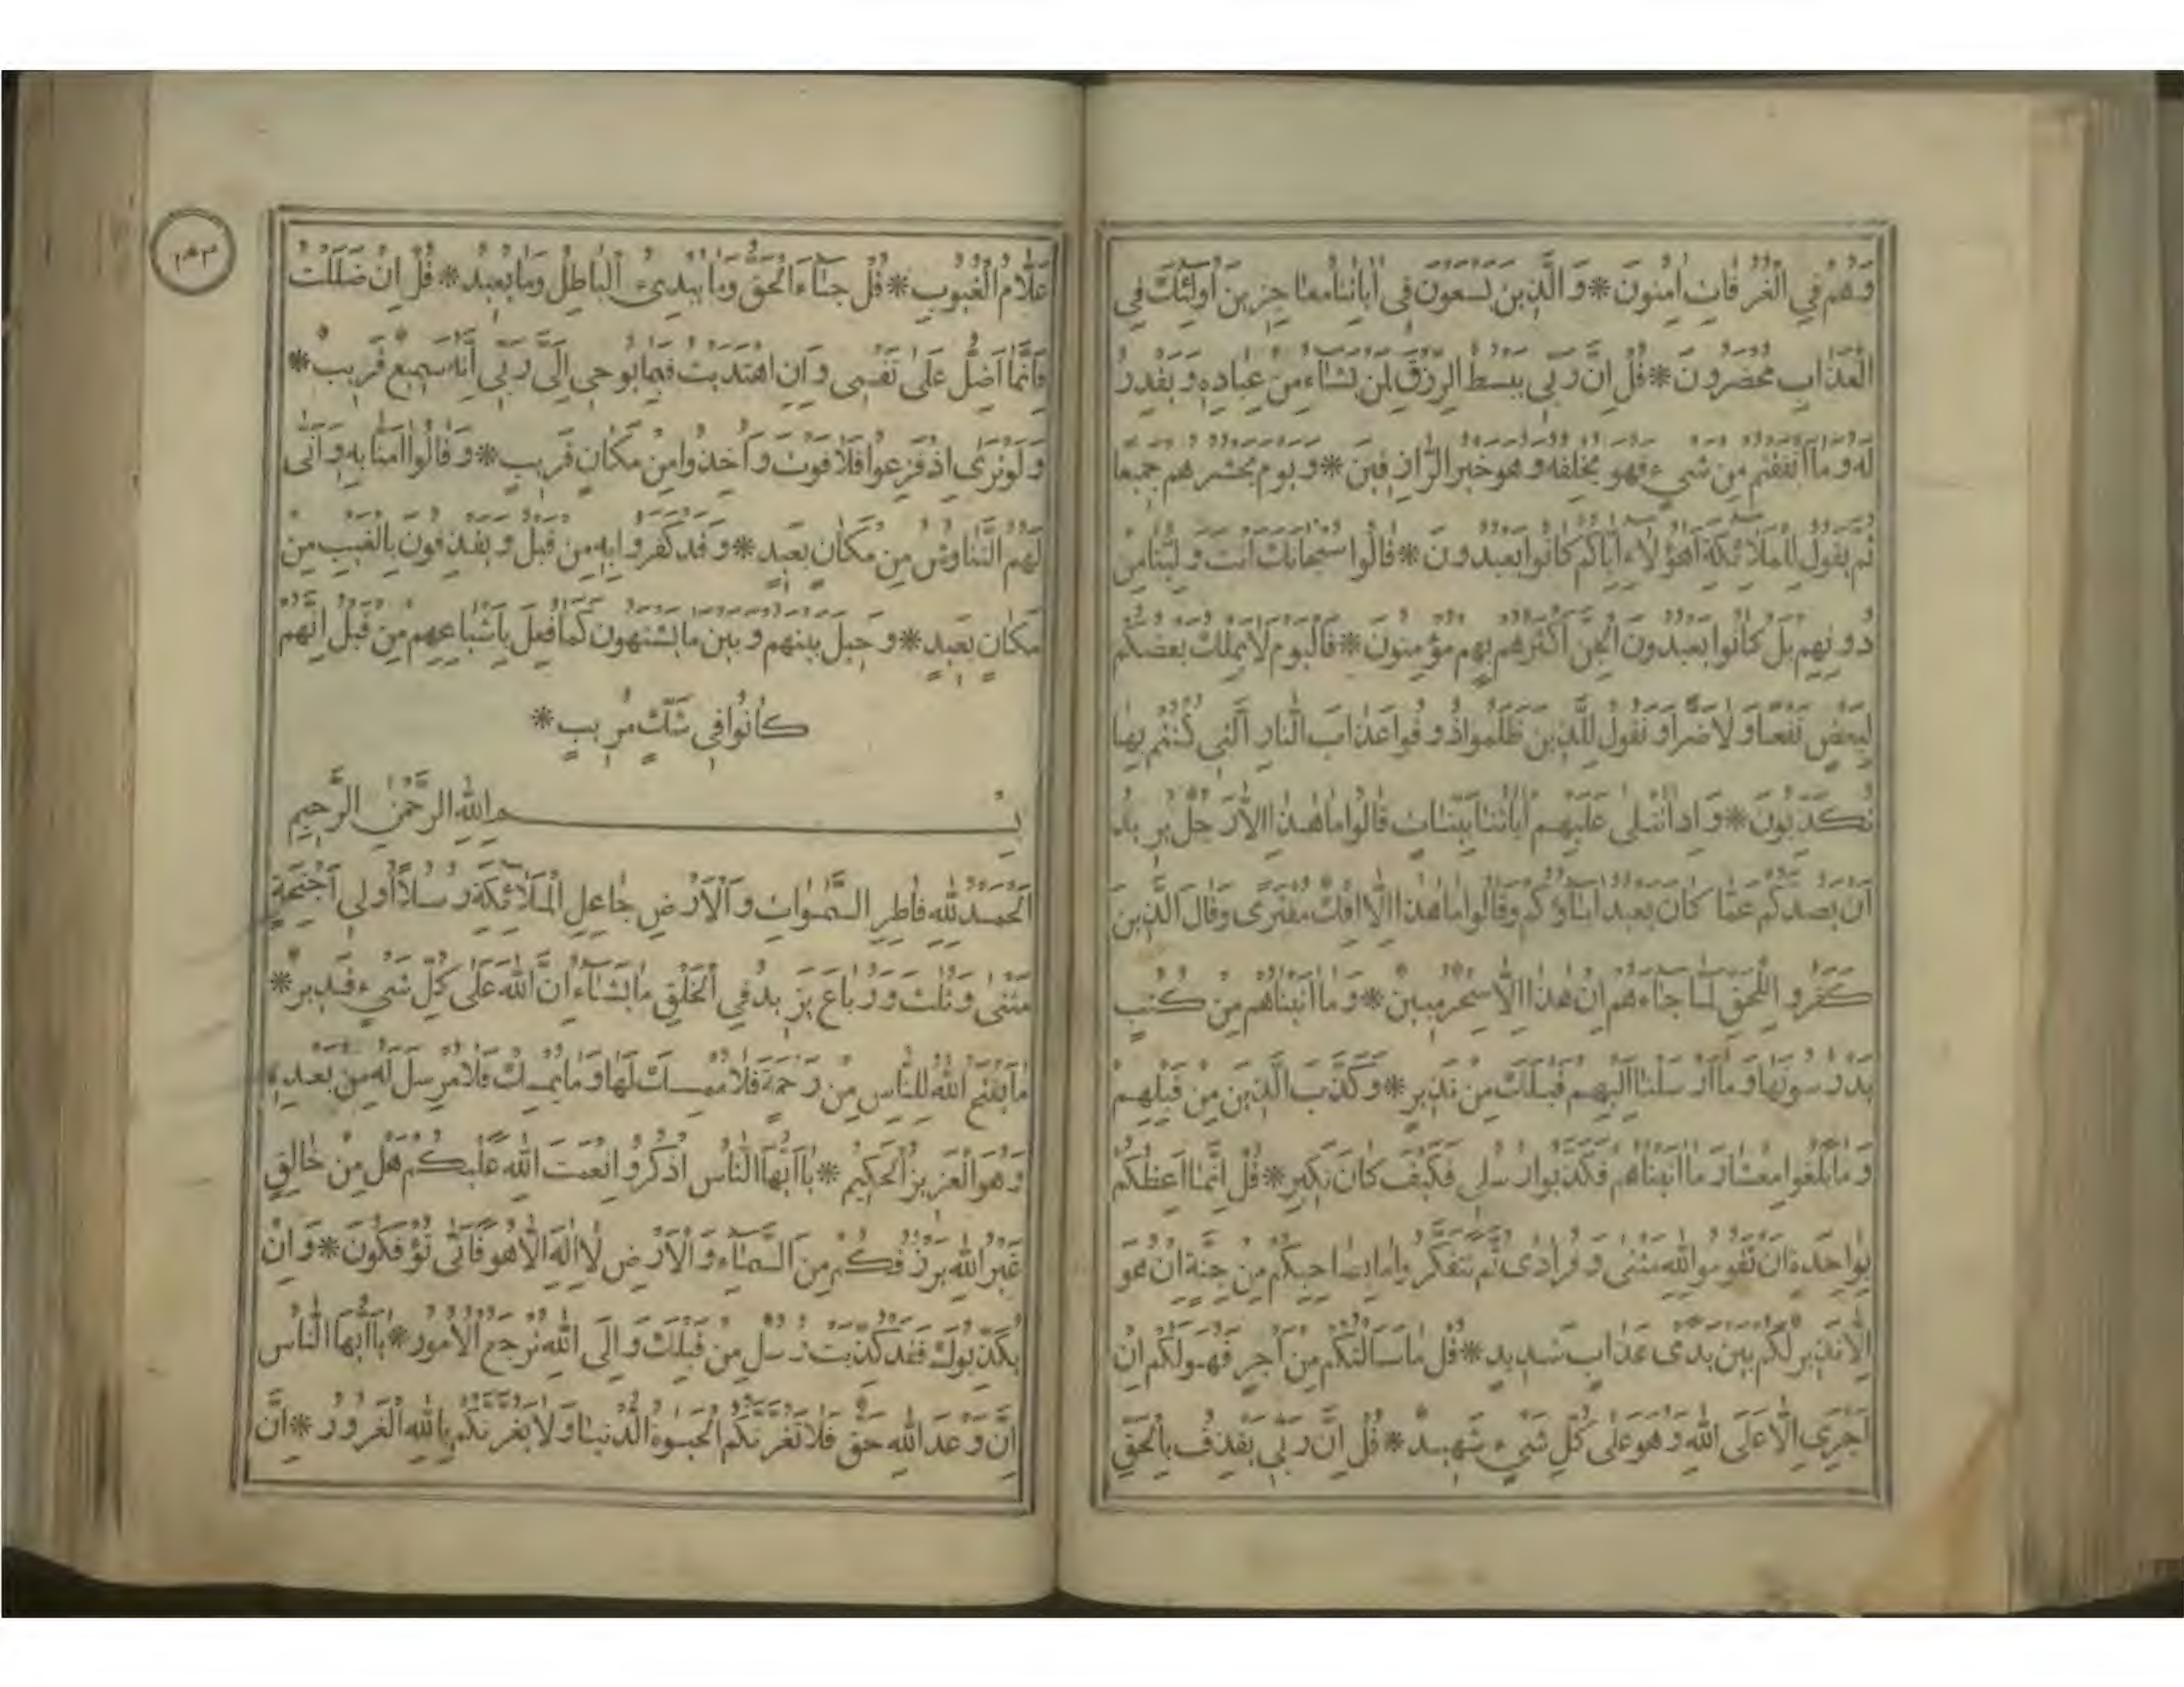 وَهُمْ فِي الْغُرُفَاتِ اٰمِنُونَ * وَالَّذِينَ يَسْعَوْنَ فِي اٰيَاتِنَا مُعَاجِزِينَ اُولٰئِكَ فِي
الْعَذَابِ مُحْضَرُونَ * قُلْ اِنَّ رَبِّي يَبْسُطُ الرِّزْقَ لِمَنْ يَشَاءُ مِنْ عِبَادِهِ وَيَقْدِرُ
لَهُ وَمَا اَنْفَقْتُمْ مِنْ شَيْءٍ فَهُوَ يُخْلِفُهُ وَهُوَ خَيْرُ الرَّازِقِينَ * وَيَوْمَ يَحْشُرُهُمْ جَمِيعًا
ثُمَّ يَقُولُ لِلْمَلَائِكَةِ اَهٰؤُلَاءِ اِيَّاكُمْ كَانُوا يَعْبُدُونَ * قَالُوا سُبْحَانَكَ اَنْتَ وَلِيُّنَا مِنْ
دُونِهِمْ بَلْ كَانُوا يَعْبُدُونَ الْجِنَّ اَكْثَرُهُمْ بِهِمْ مُؤْمِنُونَ * فَالْيَوْمَ لَا يَمْلِكُ بَعْضُكُمْ
لِبَعْضٍ نَفْعًا وَلَا ضَرًّا وَنَقُولُ لِلَّذِينَ ظَلَمُوا ذُوقُوا عَذَابَ النَّارِ الَّتِي كُنْتُمْ بِهَا
تُكَذِّبُونَ * وَاِذَا تُتْلٰى عَلَيْهِمْ اٰيَاتُنَا بَيِّنَاتٍ قَالُوا مَا هٰذَا اِلَّا رَجُلٌ يُرِيدُ
اَنْ يَصُدَّكُمْ عَمَّا كَانَ يَعْبُدُ اٰبَاؤُكُمْ وَقَالُوا مَا هٰذَا اِلَّا اِفْكٌ مُفْتَرًى وَقَالَ الَّذِينَ
كَفَرُوا لِلْحَقِّ لَمَّا جَاءَهُمْ اِنْ هٰذَا اِلَّا سِحْرٌ مُبِينٌ * وَمَا اٰتَيْنَاهُمْ مِنْ كُتُبٍ
يَدْرُسُونَهَا وَمَا اَرْسَلْنَا اِلَيْهِمْ قَبْلَكَ مِنْ نَذِيرٍ * وَكَذَّبَ الَّذِينَ مِنْ قَبْلِهِمْ
وَمَا بَلَغُوا مِعْشَارَ مَا اٰتَيْنَاهُمْ فَكَذَّبُوا رُسُلِي فَكَيْفَ كَانَ نَكِيرِ * قُلْ اِنَّمَا اَعِظُكُمْ
بِوَاحِدَةٍ اَنْ تَقُومُوا لِلّٰهِ مَثْنٰى وَفُرَادٰى ثُمَّ تَتَفَكَّرُوا مَا بِصَاحِبِكُمْ مِنْ جِنَّةٍ اِنْ هُوَ
اِلَّا نَذِيرٌ لَكُمْ بَيْنَ يَدَيْ عَذَابٍ شَدِيدٍ * قُلْ مَا سَاَلْتُكُمْ مِنْ اَجْرٍ فَهُوَ لَكُمْ اِنْ
اَجْرِيَ اِلَّا عَلَى اللّٰهِ وَهُوَ عَلٰى كُلِّ شَيْءٍ شَهِيدٌ * قُلْ اِنَّ رَبِّي يَقْذِفُ بِالْحَقِّ
١٥٣
عَلَّامُ الْغُيُوبِ * قُلْ جَاءَ الْحَقُّ وَمَا يُبْدِئُ الْبَاطِلُ وَمَا يُعِيدُ * قُلْ اِنْ ضَلَلْتُ
فَاِنَّمَا اَضِلُّ عَلٰى نَفْسِي وَاِنِ اهْتَدَيْتُ فَبِمَا يُوحِي اِلَيَّ رَبِّي اِنَّهُ سَمِيعٌ قَرِيبٌ *
وَلَوْ تَرٰى اِذْ فَزِعُوا فَلَا فَوْتَ وَاُخِذُوا مِنْ مَكَانٍ قَرِيبٍ * وَقَالُوا اٰمَنَّا بِهِ وَاَنّٰى
لَهُمُ التَّنَاوُشُ مِنْ مَكَانٍ بَعِيدٍ * وَقَدْ كَفَرُوا بِهِ مِنْ قَبْلُ وَيَقْذِفُونَ بِالْغَيْبِ مِنْ
مَكَانٍ بَعِيدٍ * وَحِيلَ بَيْنَهُمْ وَبَيْنَ مَا يَشْتَهُونَ كَمَا فُعِلَ بِاَشْيَاعِهِمْ مِنْ قَبْلُ اِنَّهُمْ
كَانُوا فِي شَكٍّ مُرِيبٍ *
بِسْمِ اللّٰهِ الرَّحْمٰنِ الرَّحِيمِ
اَلْحَمْدُ لِلّٰهِ فَاطِرِ السَّمٰوَاتِ وَالْاَرْضِ جَاعِلِ الْمَلَائِكَةِ رُسُلًا اُولِي اَجْنِحَةٍ
مَثْنٰى وَثُلٰثَ وَرُبَاعَ يَزِيدُ فِي الْخَلْقِ مَا يَشَاءُ اِنَّ اللّٰهَ عَلٰى كُلِّ شَيْءٍ قَدِيرٌ *
مَا يَفْتَحِ اللّٰهُ لِلنَّاسِ مِنْ رَحْمَةٍ فَلَا مُمْسِكَ لَهَا وَمَا يُمْسِكْ فَلَا مُرْسِلَ لَهُ مِنْ بَعْدِهِ
وَهُوَ الْعَزِيزُ الْحَكِيمُ * يَا اَيُّهَا النَّاسُ اذْكُرُوا نِعْمَتَ اللّٰهِ عَلَيْكُمْ هَلْ مِنْ خَالِقٍ
غَيْرُ اللّٰهِ يَرْزُقُكُمْ مِنَ السَّمَاءِ وَالْاَرْضِ لَا اِلٰهَ اِلَّا هُوَ فَاَنّٰى تُؤْفَكُونَ * وَاِنْ
يُكَذِّبُوكَ فَقَدْ كُذِّبَتْ رُسُلٌ مِنْ قَبْلِكَ وَاِلَى اللّٰهِ تُرْجَعُ الْاُمُورُ * يَا اَيُّهَا النَّاسُ
اِنَّ وَعْدَ اللّٰهِ حَقٌّ فَلَا تَغُرَّنَّكُمُ الْحَيٰوةُ الدُّنْيَا وَلَا يَغُرَّنَّكُمْ بِاللّٰهِ الْغَرُورُ * اِنَّ